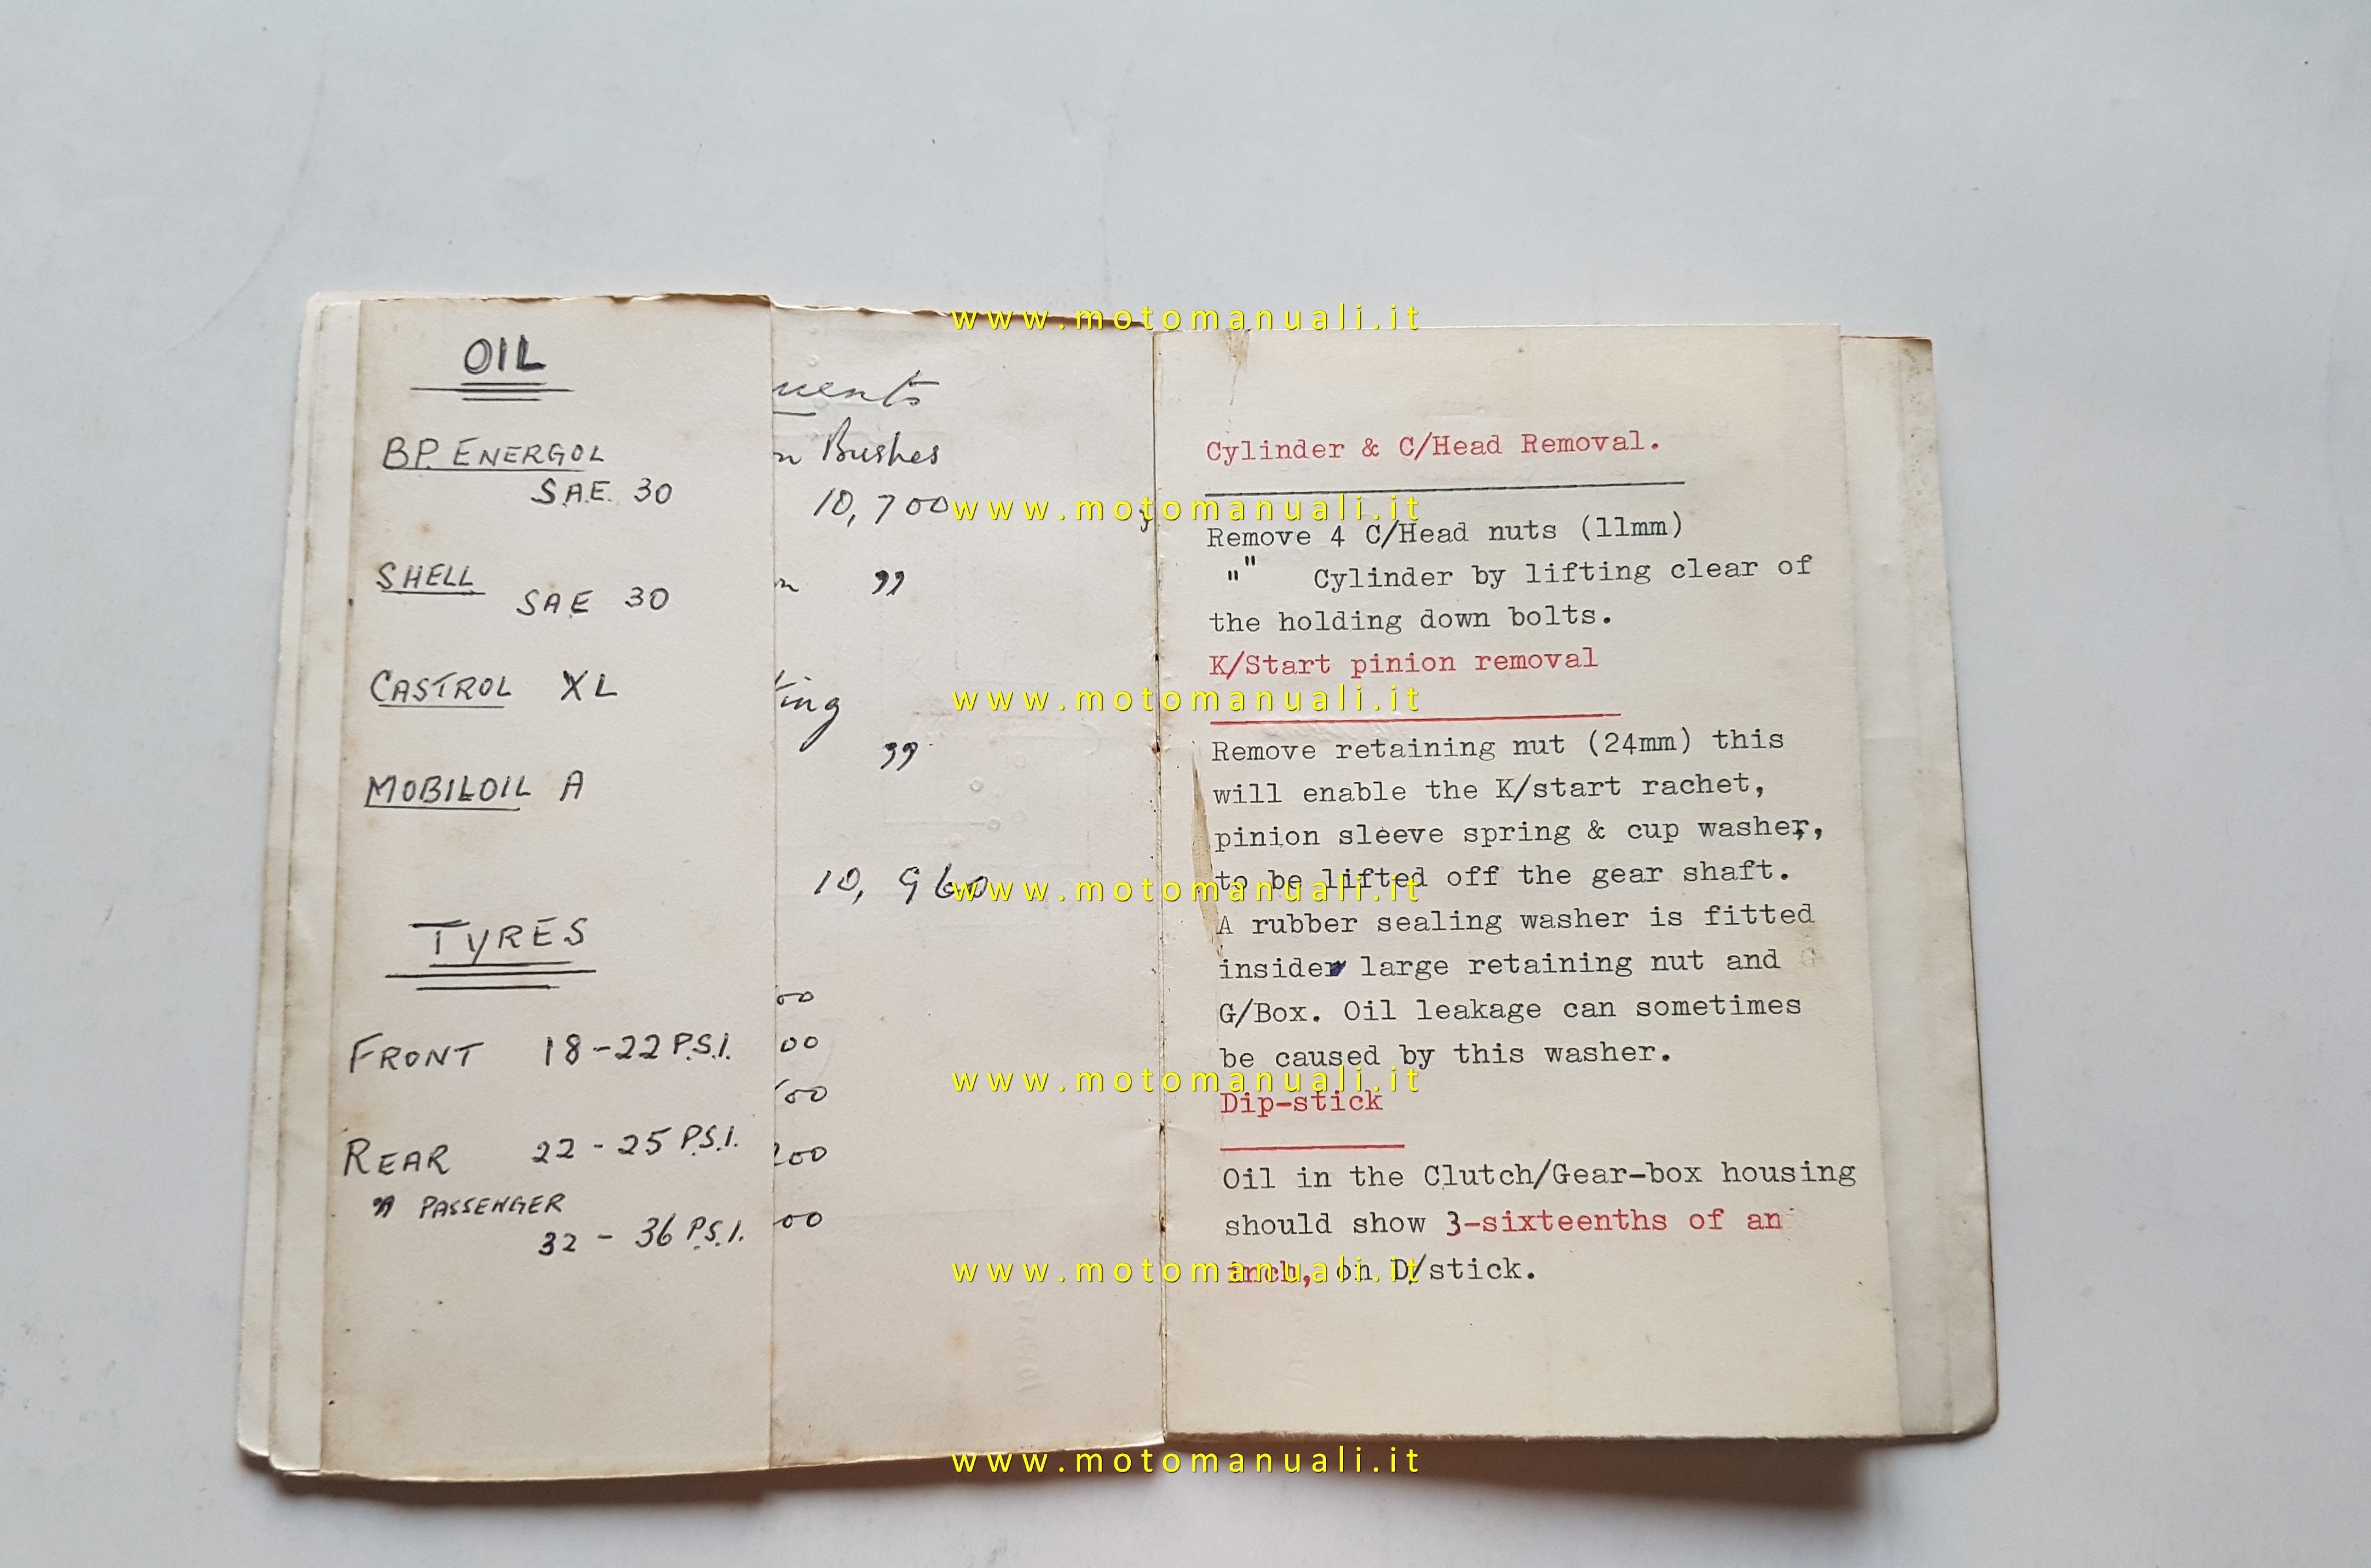 OIL
BP. ENERGOL
S.A.E. 30
SHELL
SAE 30
CASTROL XL
MOBILOIL A
TYRES
FRONT 18-22 P.S.I.
REAR 22-25 P.S.I.
" PASSENGER
32-36 P.S.I.
uents
n Bushes
10,700
n "
ting
"
10,960
00
00
00
200
00
Cylinder & C/Head Removal.
Remove 4 C/Head nuts (11mm)
" " Cylinder by lifting clear of
the holding down bolts.
K/Start pinion removal
Remove retaining nut (24mm) this
will enable the K/start rachet,
pinion sleeve spring & cup washer,
to be lifted off the gear shaft.
A rubber sealing washer is fitted
inside large retaining nut and G
G/Box. Oil leakage can sometimes
be caused by this washer.
Dip-stick
Oil in the Clutch/Gear-box housing
should show 3-sixteenths of an
inch, on D/stick.
www.motomanuali.it
www.motomanuali.it
www.motomanuali.it
www.motomanuali.it
www.motomanuali.it
www.motomanuali.it
www.motomanuali.it